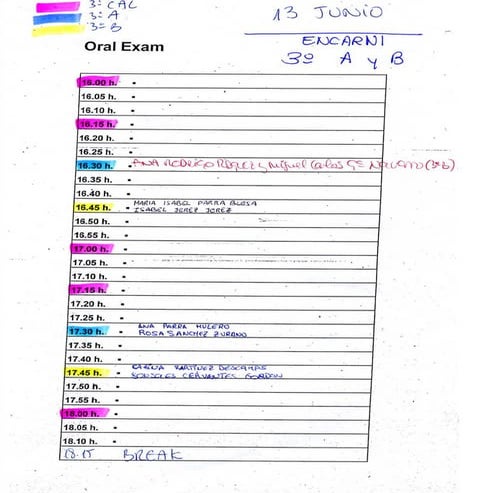 3º CAL
3º A
3º B
13 JUNIO
Oral Exam
ENCARNI
3º A y B
16.00 h.
16.05 h.
16.10 h.
16.15 h.
16.20 h.
16.25 h.
16.30 h. ANA RODRIGO y Miguel (3ºb)
16.35 h.
16.40 h.
16.45 h. MARIA ISABEL PARRA
ISABEL JEREZ JEREZ
16.50 h.
16.55 h.
17.00 h.
17.05 h.
17.10 h.
17.15 h.
17.20 h.
17.25 h.
17.30 h. ANA PARRA MULERO
ROSA SANCHEZ ZURANO
17.35 h.
17.40 h.
17.45 h. MARTINEZ DESCAMPS
SONSOLES CERVANTES GORDON
17.50 h.
17.55 h.
18.00 h.
18.05 h.
18.10 h.
18.15 BREAK